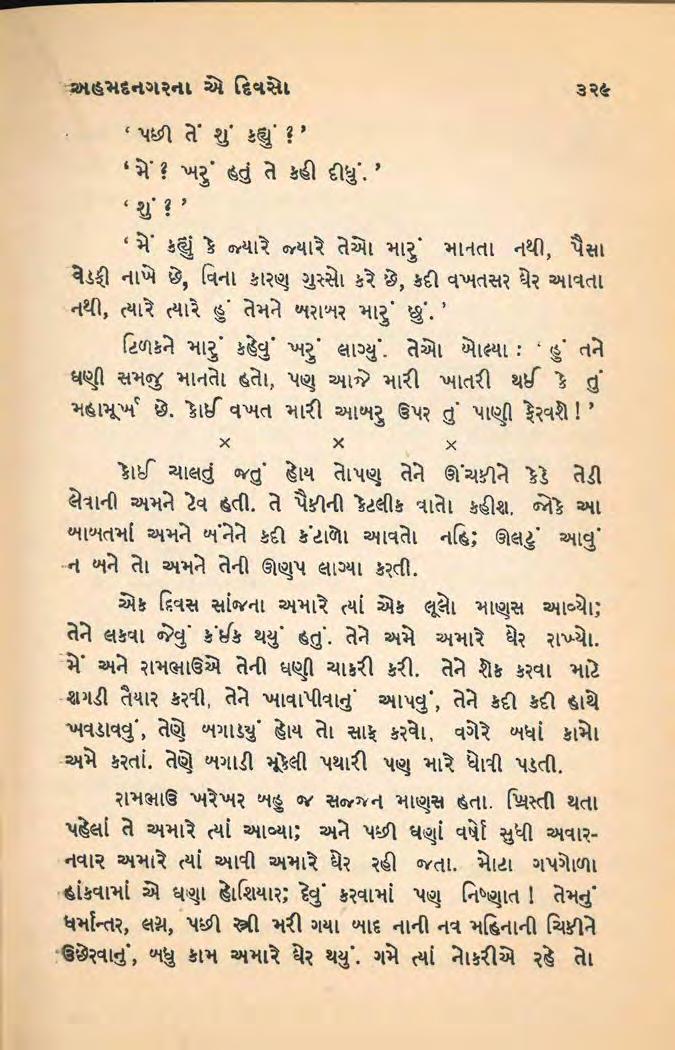 અહમદનગરના એ દિવસો ૩૨૯
‘ પછી તેં શું કહ્યું ? ’
‘ મેં ? ખરું હતું તે કહી દીધું. ’
‘ શું ? ’
‘ મેં કહ્યું કે જ્યારે જ્યારે તેઓ મારું માનતા નથી, પૈસા
વેડફી નાખે છે, વિના કારણ ગુસ્સો કરે છે, કદી વખતસર ઘેર આવતા
નથી, ત્યારે ત્યારે હું તેમને બરાબર મારું છું. ’
ટિળકને મારું કહેવું ખરું લાગ્યું. તેઓ બોલ્યા : ‘ હું તને
ઘણી સમજુ માનતો હતો, પણ આજે મારી ખાતરી થઈ કે તું
મહામૂર્ખ છે. કોઈ વખત મારી આબરુ ઉપર તું પાણી ફેરવશે ! ’
× × ×
કોઈ ચાલતું જતું હોય તોપણ તેને ઊંચકીને કેડે તેડી
લેવાની અમને ટેવ હતી. તે પૈકીની કેટલીક વાતો કહીશ. જોકે આ
બાબતમાં અમને બંનેને કદી કંટાળો આવતો નહિ; ઊલટું આવું
ન બને તો અમને તેની ઊણપ લાગ્યા કરતી.
એક દિવસ સાંજના અમારે ત્યાં એક લૂલો માણસ આવ્યો;
તેને લકવા જેવું કંઈક થયું હતું. તેને અમે અમારે ઘેર રાખ્યો.
મેં અને રામભાઉએ તેની ઘણી ચાકરી કરી. તેને શેક કરવા માટે
શગડી તૈયાર કરવી, તેને ખાવાપીવાનું આપવું, તેને કદી કદી હાથે
ખવડાવવું, તેણે બગાડયું હોય તો સાફ કરવો, વગેરે બધાં કામો
અમે કરતાં. તેણે બગાડી મૂકેલી પથારી પણ મારે ધોવી પડતી.
રામભાઉ ખરેખર બહુ જ સજ્જન માણસ હતા. ખ્રિસ્તી થતા
પહેલાં તે અમારે ત્યાં આવ્યા; અને પછી ઘણાં વર્ષો સુધી અવાર-
નવાર અમારે ત્યાં આવી અમારે ઘેર રહી જતા. મોટા ગપગોળા
હાંકવામાં એ ઘણા હોશિયાર; દેવું કરવામાં પણ નિષ્ણાત ! તેમનું
ધર્માન્તર, લગ્ન, પછી સ્ત્રી મરી ગયા બાદ નાની નવ મહિનાની ચિકીને
ઉછેરવાનું, બધુ કામ અમારે ઘેર થયું. ગમે ત્યાં નોકરીએ રહે તો